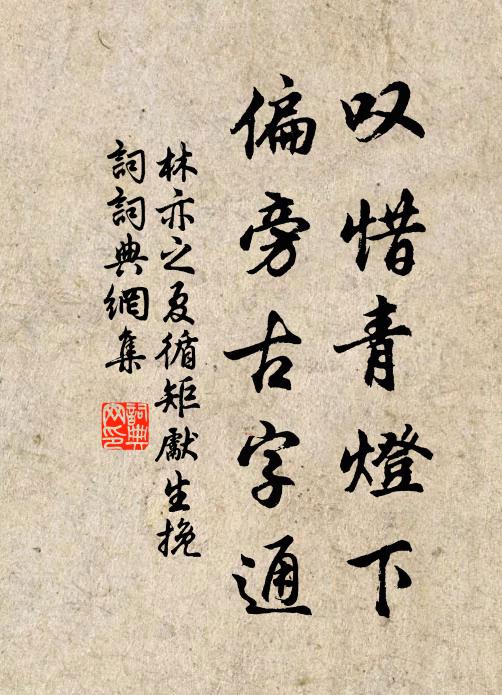 叹惜青燈下
偏旁古字通
林亦之夏循矩獻生挽
詞詞典網集
詞典网印